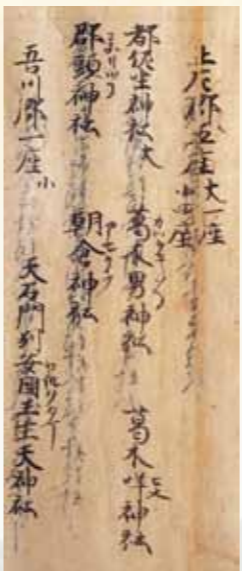 土左郡五座 大一座 小四座
都佐坐神社 大 葛木男神社 葛木咩神社
郡頭神社 朝倉神社
吾川郡一座 小 天石門別安國玉主天神社